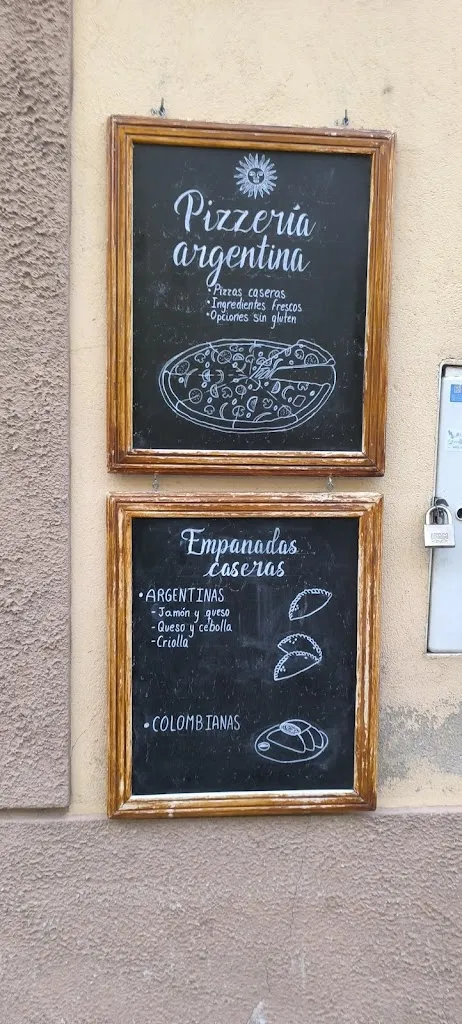 Pizzería
argentina
• Pizzas caseras
• Ingredientes frescos
• Opciones sin gluten
Empanadas
caseras
• ARGENTINAS
- Jamón y queso
- Queso y cebolla
- Criolla
• COLOMBIANAS